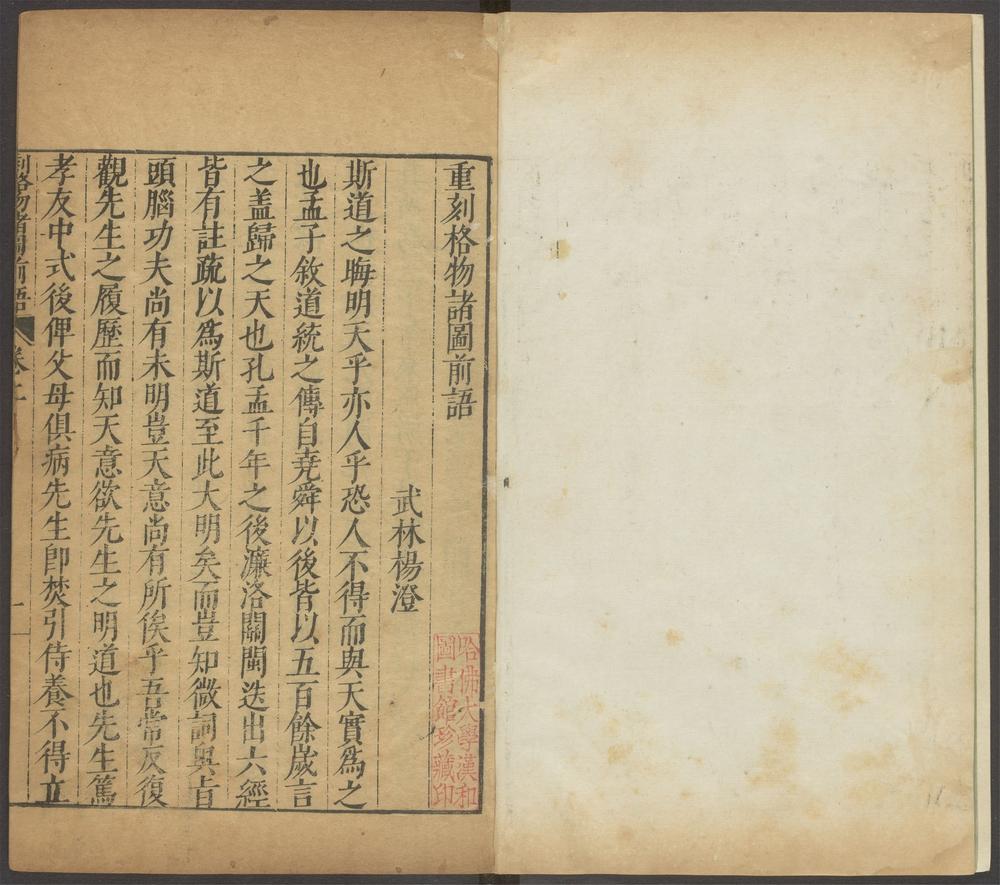 重刻格物諸圖前語
武林楊澄
斯道之晦明天乎亦人乎恐人不得而與天實為之
也孟子敘道統之傳自堯舜以後皆以五百餘歲言
之盖歸之天也孔孟千年之後濂洛關閩迭出六經
皆有註疏以爲斯道至此大明矣而豈知微詞與旨
頭腦功夫尚有未明豈天意尚有所俟乎吾常反復
觀先生之履歷而知天意欲先生之明道也先生篤
孝友中式後俾父母俱病先生卽焚引侍養不得立
刻格物諸圖前語 卷上 一
哈佛大學漢和
圖書館珍藏印